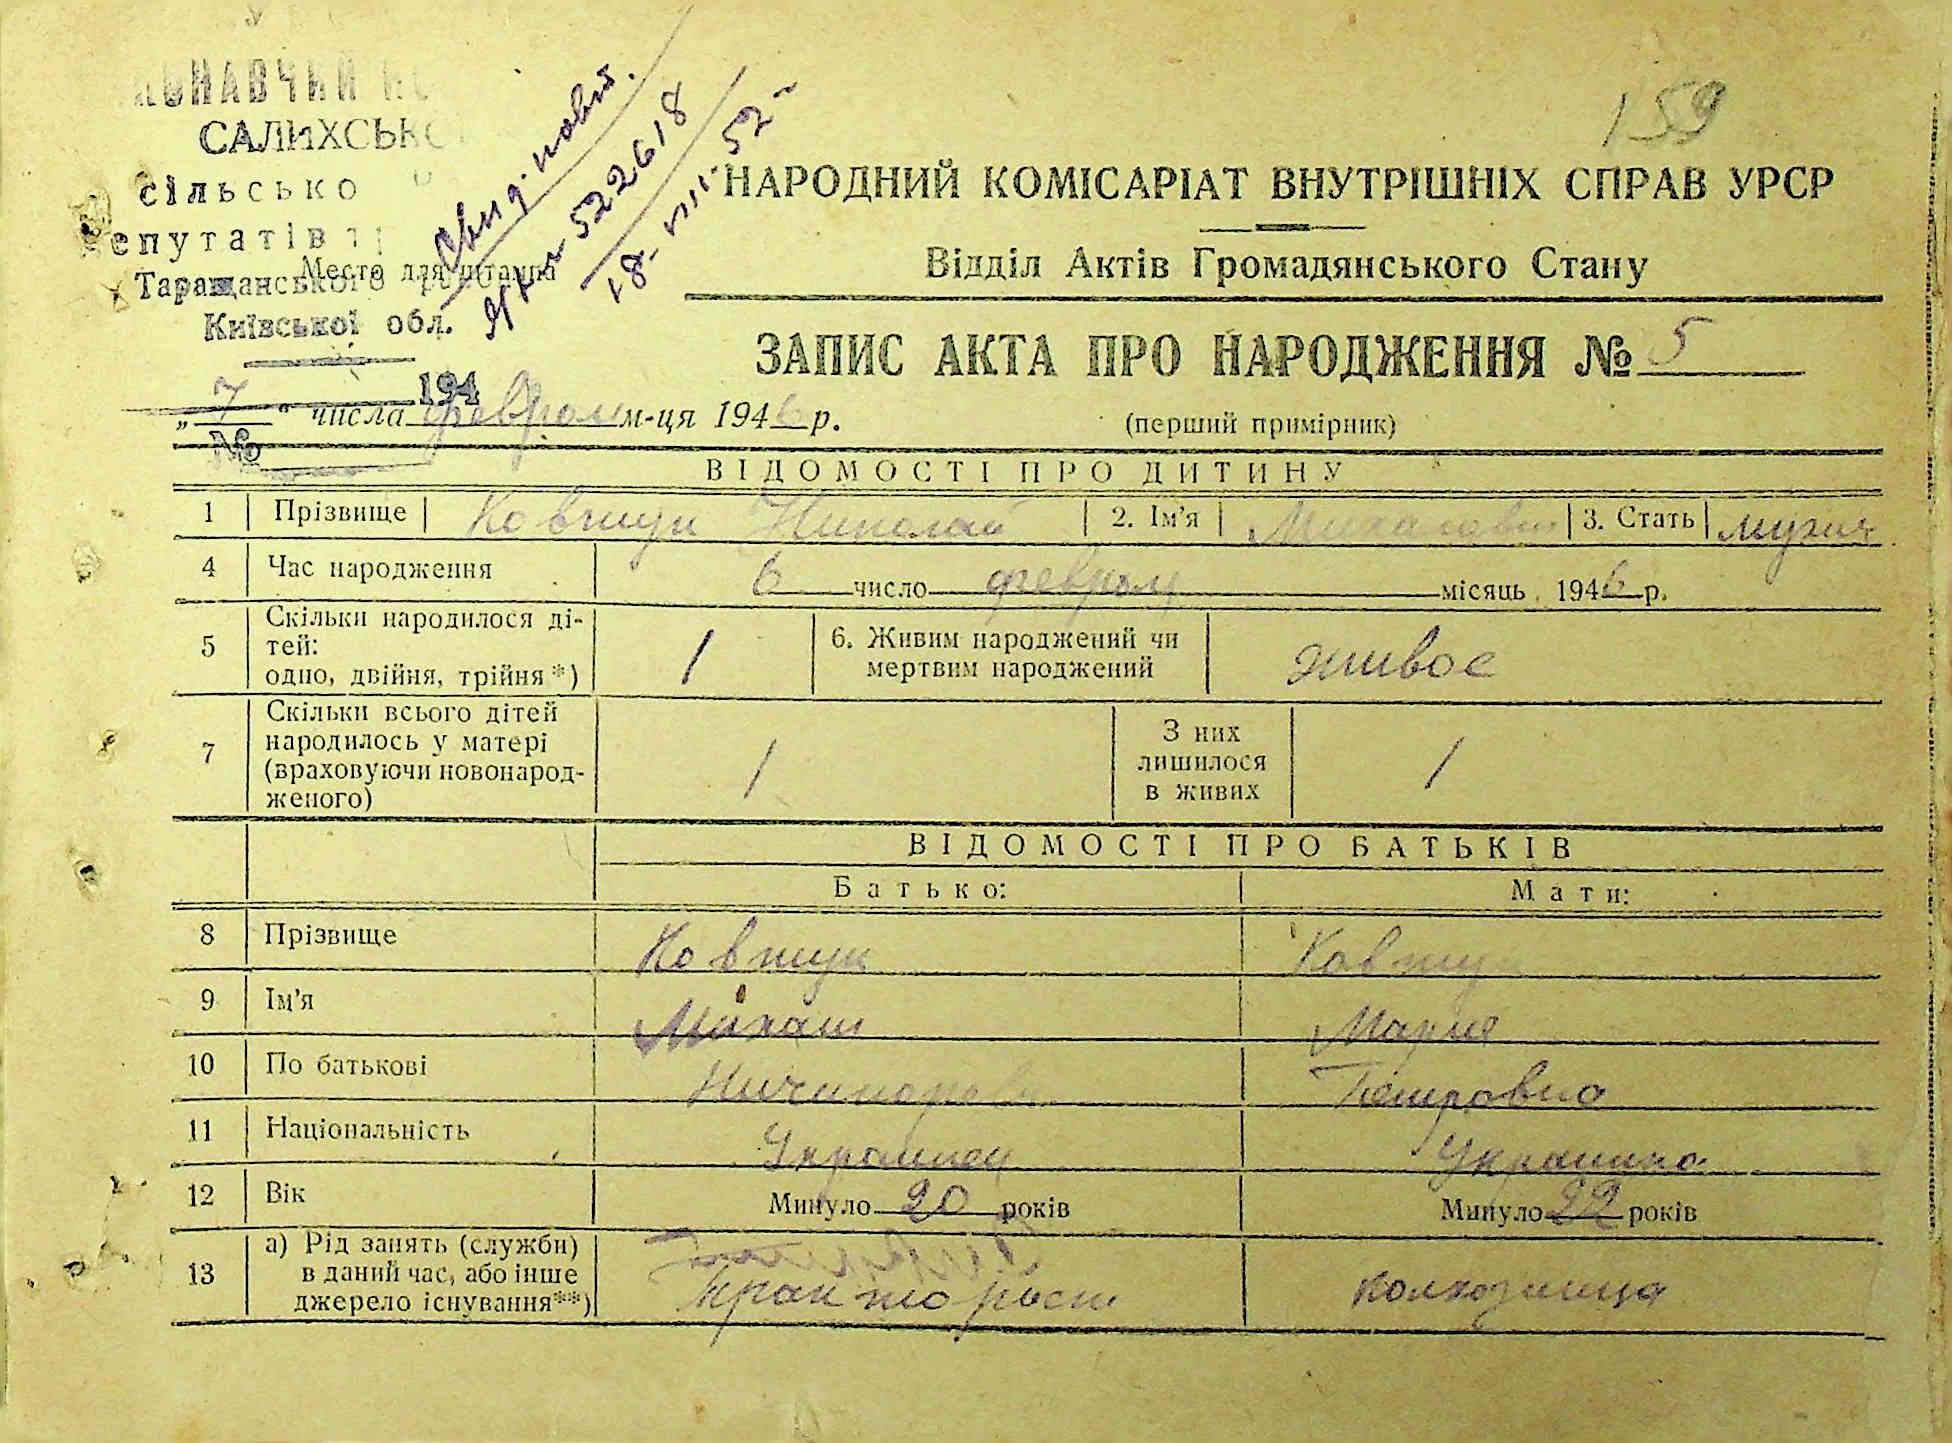 159
САЛИХСЬКО
сільсько
епутатів
Таращанського
Место для штампа
Київської обл.
194
№
Свид. повт.
522618
18 - VIII - 52
НАРОДНИЙ КОМІСАРІАТ ВНУТРІШНІХ СПРАВ УРСР
Відділ Актів Громадянського Стану
ЗАПИС АКТА ПРО НАРОДЖЕННЯ № 5
„ 7 “ числа феврал м-ця 1946 р.
(перший примірник)
ВІДОМОСТІ ПРО ДИТИНУ
1 Прізвище Ковтун Николай 2. Ім'я 3. Стать
4 Час народження 6 число феврал місяць 1946 р.
5 Скільки народилося ді-
тей:
одно, двійня, трійня *) 1
6. Живим народжений чи
мертвим народжений живое
7 Скільки всього дітей
народилось у матері
(враховуючи новонарод-
женого) 1
З них
лишилося
в живих 1
ВІДОМОСТІ ПРО БАТЬКІВ
Батько: Мати:
8 Прізвище Ковтун Ковтун
9 Ім'я Михаил Мария
10 По батькові Петровна
11 Національність Украинец Украинка
12 Вік Минуло 20 років Минуло 22 років
13 а) Рід занять (служби)
в даний час, або інше
джерело існування**)
тракторист колхозница